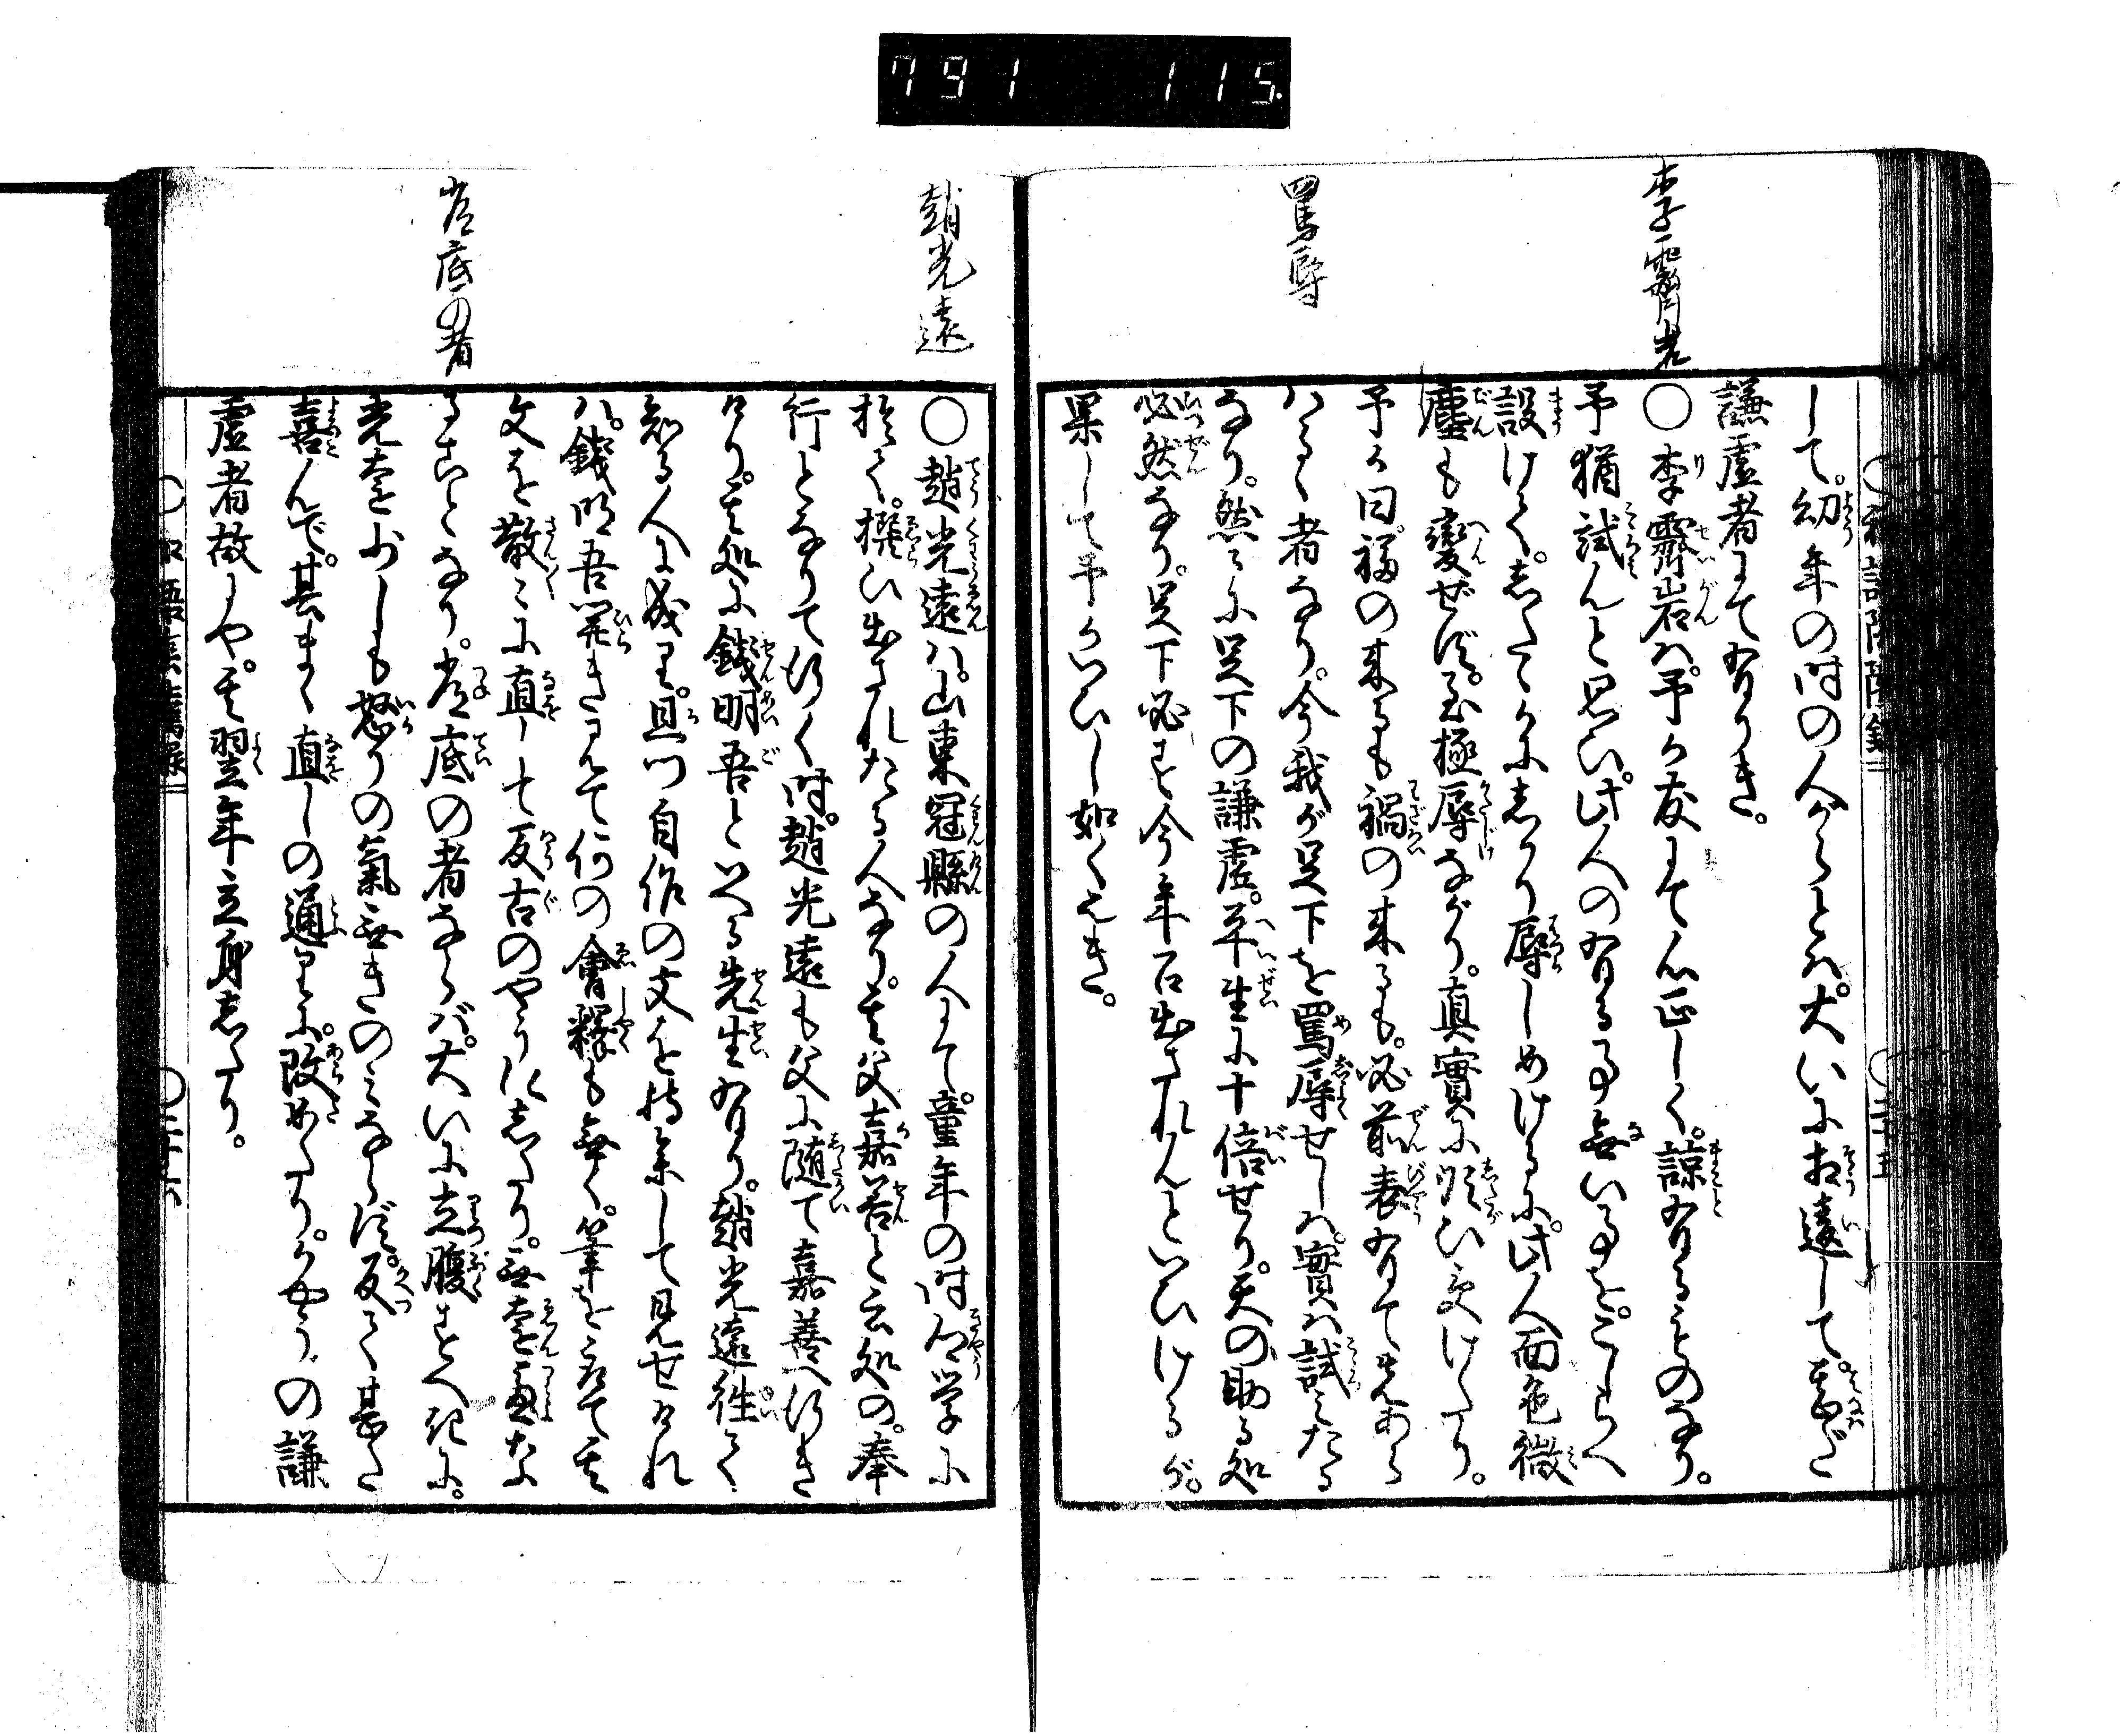 791 115
李霽岩
罵辱
して。幼年の時の人がらとハ。大いに相違して。甚だ
謙虚者にて有りき。
○李霽岩ハ。予が友にて。心正しく。諒有るものなり。
予猶試んと思ひ。此人への有る事無い事を。こしらへ
設けて。したゝかにしかり辱しめけるに。此人面色微
塵も變ぜず。至極辱ながり。真實に順ひ受けたり。
予が曰。福の来るも禍の来るも。必前表有て先あら
ハるゝ者なり。今我が足下を罵辱せしハ。實ハ試みたる
なり。然るに足下の謙虚。平生に十倍せり。天の助る処
必然なり。足下必ず今年召出されんといひけるが。
果して予がいひし如くにき。
趙光遠
常底の者
○趙光遠ハ。山東冠縣の人にて。童年の時郷学に
於て。撰ひ出されたる人なり。其父嘉善と云処の。奉
行となりて行く時。趙光遠も父に随て嘉善へ行き
けり。其処に錢明吾といへる先生有り。趙光遠往て
知る人に成り。且つ自作の文を持参して見せけれ
ハ。錢明吾開き見て何の會釋も無く。筆を取て其
文を散々に直して反古のやうにしたり。無遠慮な
ることなり。常底の者ならバ。大いに立腹すべきに。
光遠少しも怒りの氣無きのみならず。反て甚だ
喜んで。其まゝ直しの通りに。改めたり。かやうの謙
虚者故にや。其翌年立身したり。